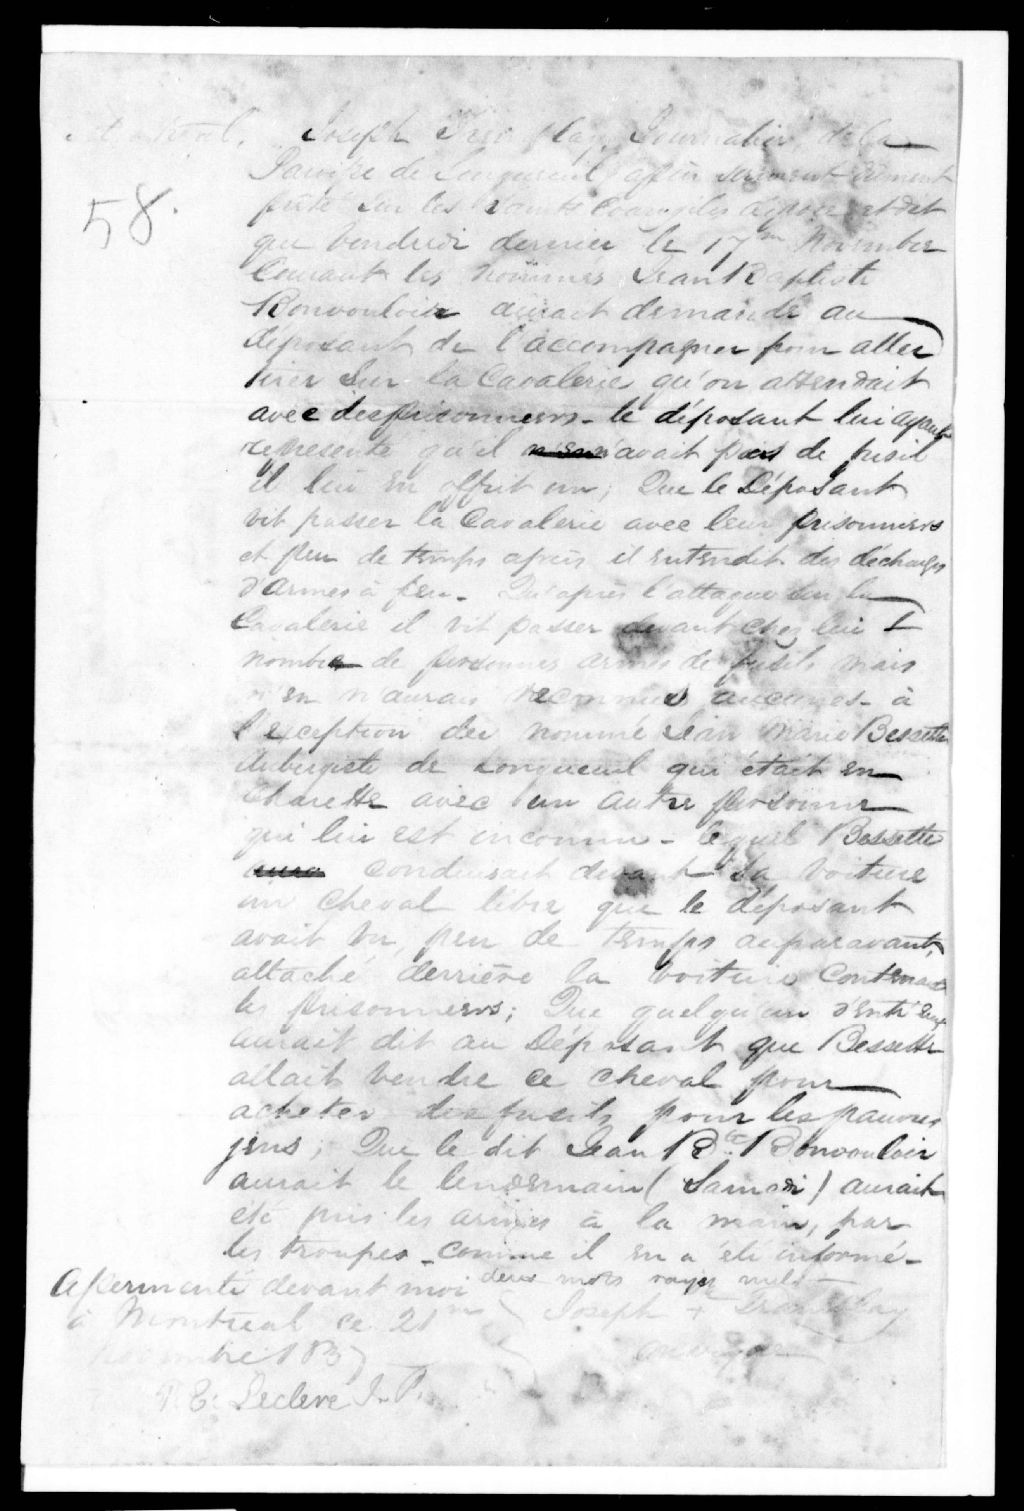 Montréal. Joseph Tremblay, Journalier, de la
Paroisse de Longueuil après serment dûment
prêté sur les Saints Evangiles dépose et dit
58.
que Vendredi dernier le 17me Novembre
Courant les nommés Jean Baptiste
Bonvouloir aurait demandé au
déposant de l'accompagner pour aller
tirer sur la Cavalerie qu'on attendait
avec des prisonniers - le déposant lui ayant
représenté qu'il n'avait pas de fusil
il lui en offrit un; Que le Déposant
vit passer la Cavalerie avec leur prisonniers
et peu de temps après il entendit des décharges
d'armes à feu - Qu'après l'attaque sur la
Cavalerie il vit passer devant chez lui
nombre de personnes armés de fusils mais
n'en n'aurais reconnus aucunes - à
l'exception du nommé Jean Marie Bessette
Aubergiste de Longueuil qui était en
Charette avec un autre personne
qui lui est inconnu - lequel Bessette
conduisait devant sa voiture
un cheval libre que le déposant
avait vu, peu de temps auparavant,
attaché derrière la voiture contenant
les prisonniers; Que quelqu'un d'entr'eux
aurait dit au Déposant que Bessette
allait vendre ce cheval pour
acheter des fusils pour les pauvres
jens; Que le dit Jean Bte Bonvouloir
aurait le lendemain (Samedi) aurait
été pris les armes à la main, par
les troupes - comme il en a été informé -
deux mots rayés nuls -
Assermenté devant moi
à Montréal ce 21me Joseph + Tremblay
Novembre 1837 marque
P. E. Leclere J. P.